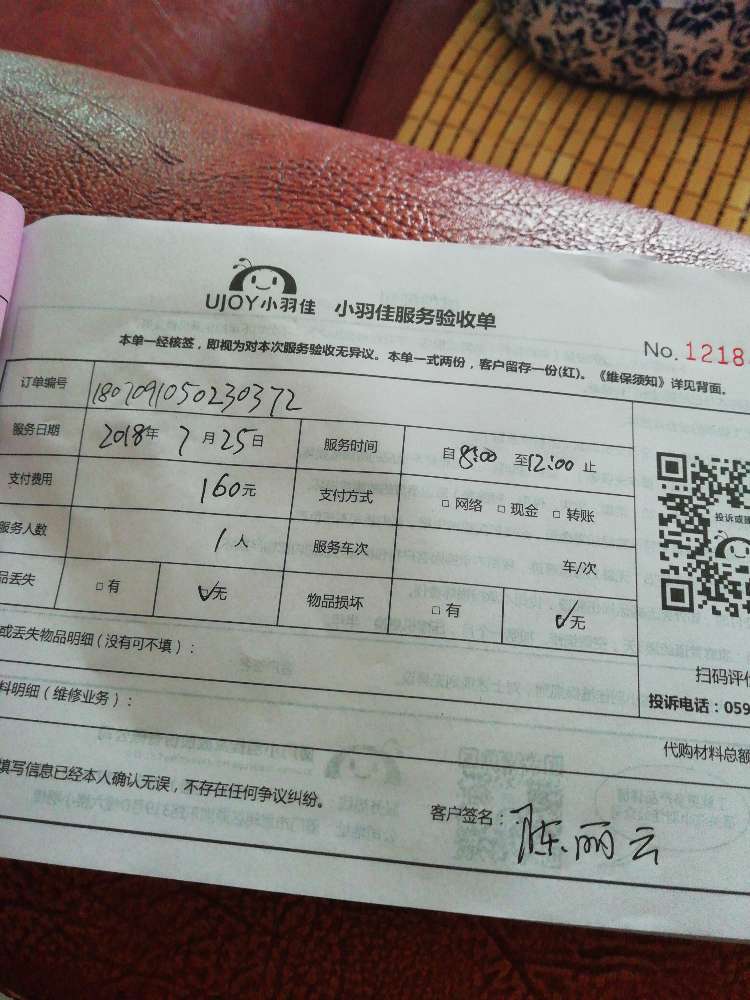 UJOY小羽佳 小羽佳服务验收单
No. 1218
本单一经核签，即视为对本次服务验收无异议。本单一式两份，客户留存一份(红)。《维保须知》详见背面。
订单编号 1807091050230372
服务日期 2018年 7月25日 服务时间 自8:00 至12:00 止
支付费用 160元 支付方式 □ 网络 □ 现金 □ 转账
服务人数 1人 服务车次 车/次
品丢失 □ 有 ☑无 物品损坏 □ 有 ☑无
投诉或建
或丢失物品明细（没有可不填）：
扫码评价
投诉电话：059
料明细（维修业务）：
代购材料总额
填写信息已经本人确认无误，不存在任何争议纠纷。
客户签名：陈丽云